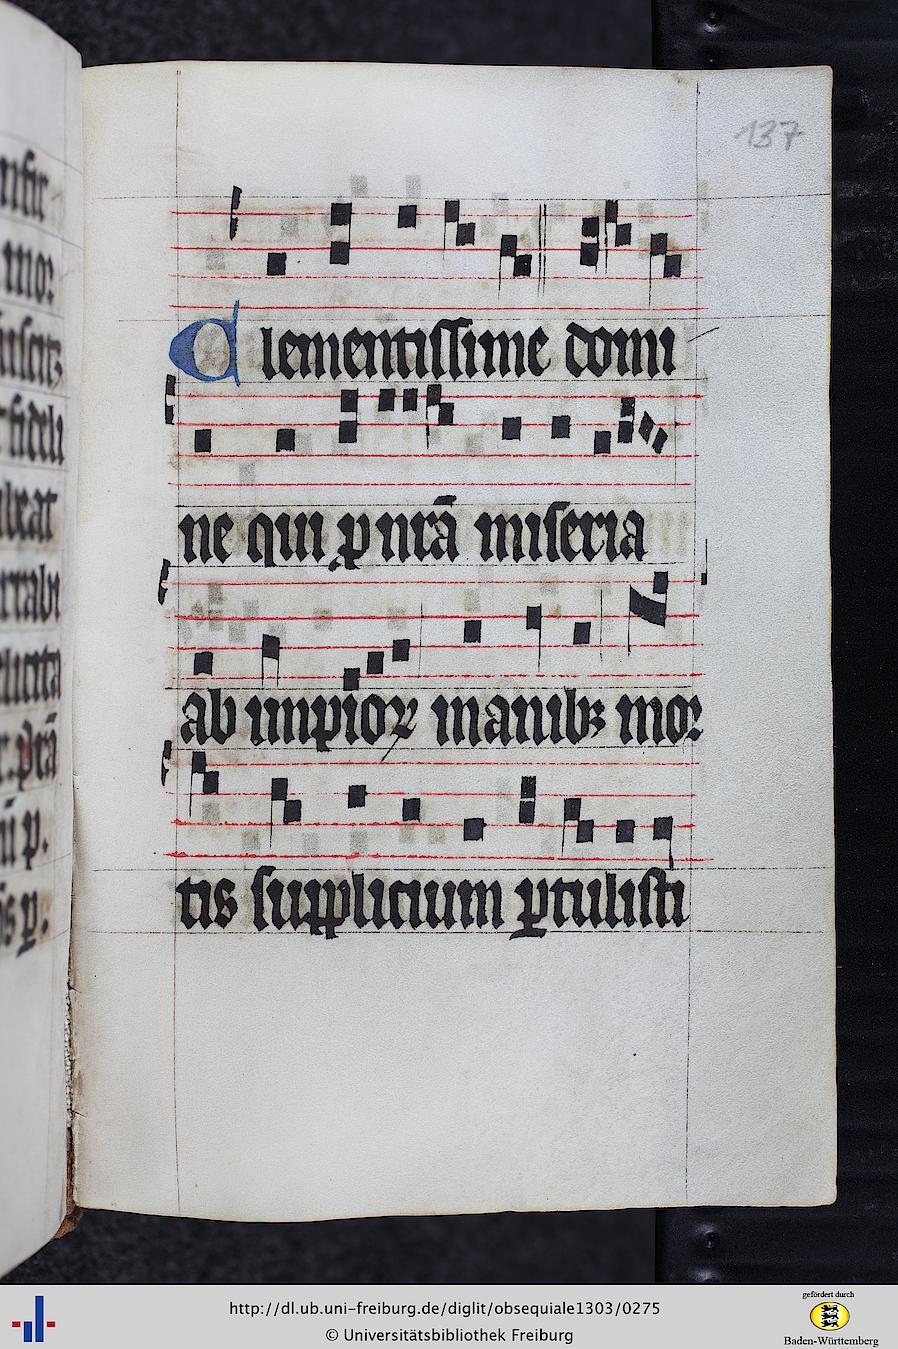 137
Clementissime domi
ne qui ꝑ nrã miseria
ab impioꝝ manibꝫ moꝛ
tis supplicium ꝑtulisti
http://dl.ub.uni-freiburg.de/diglit/obsequiale1303/0275
© Universitätsbibliothek Freiburg
gefördert durch
Baden-Württemberg